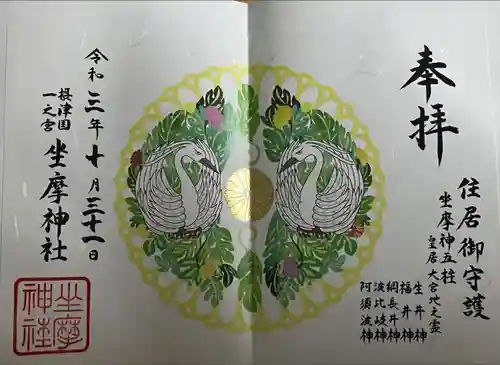 奉拝
住居御守護
坐摩神五柱
皇居 大宮地之霊
生井神
福井神
綱長井神
波比岐神
阿須波神
令和三年十月三十一日
摂津国
一之宮
坐摩神社
坐摩
神社